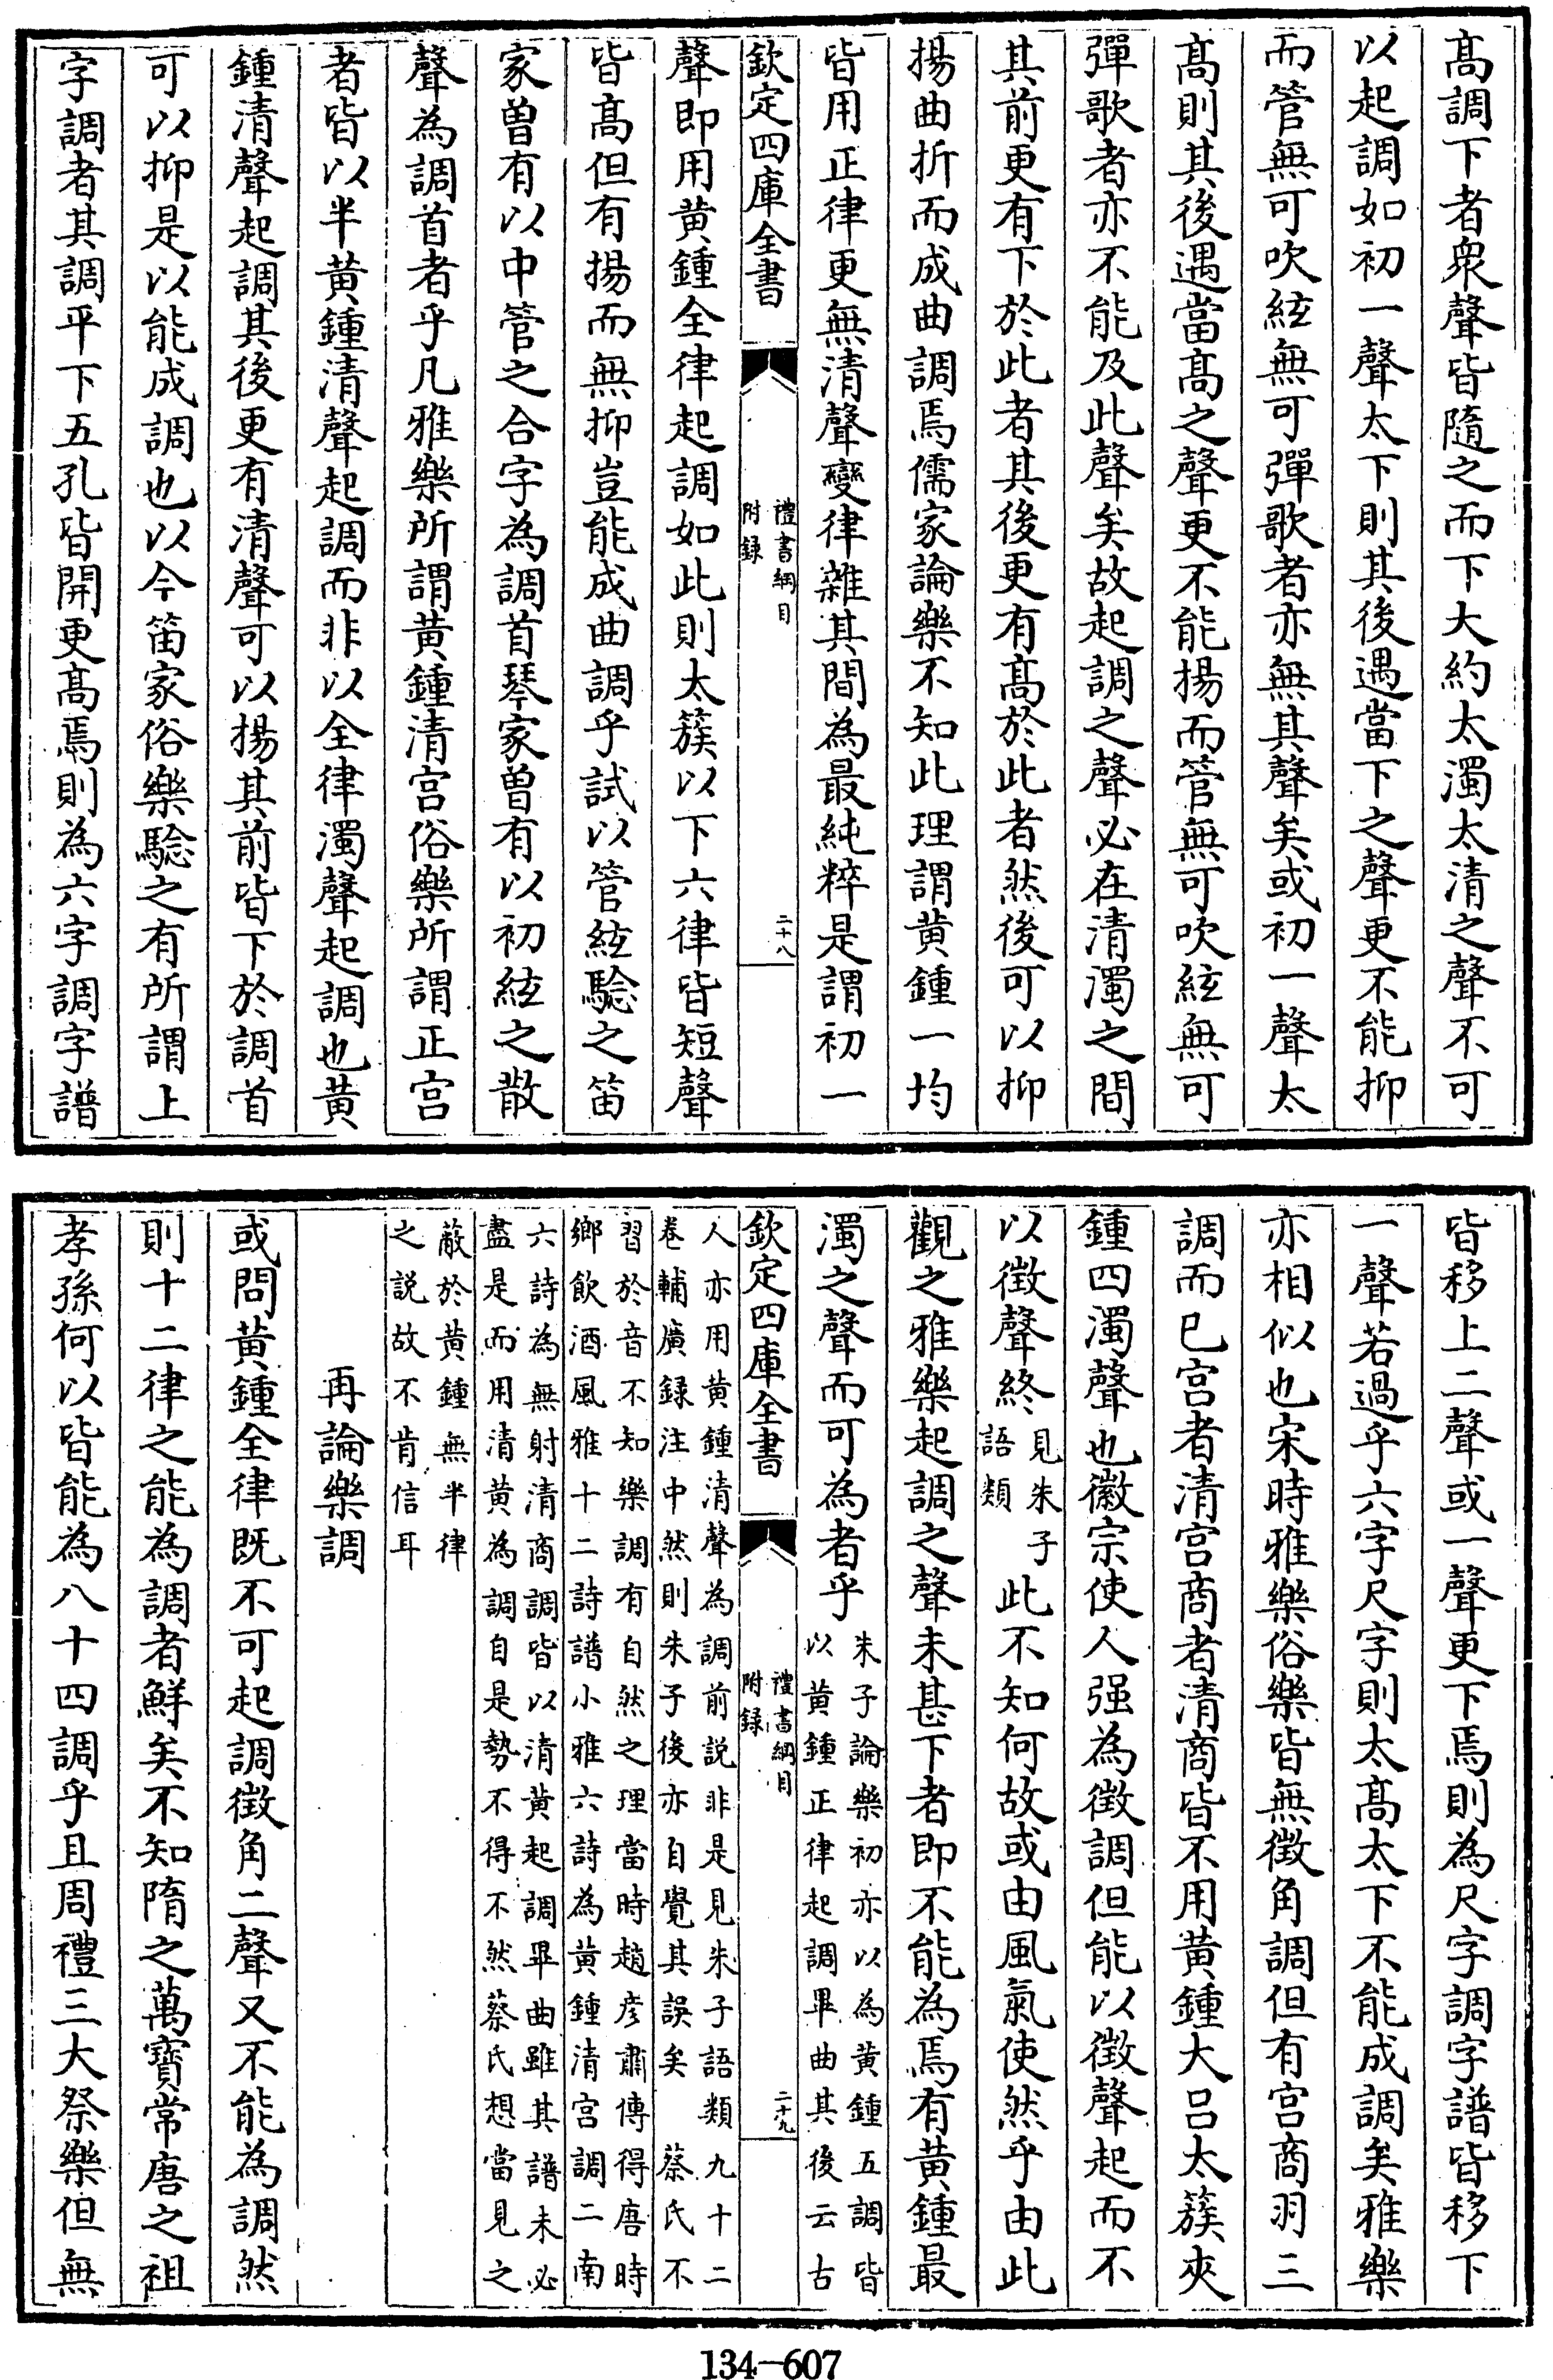 髙調下者衆聲皆隨之而下大約太濁太清之聲不可
以起調如初一聲太下則其後遇當下之聲更不能抑
而管無可吹絃無可彈歌者亦無其聲矣或初一聲太
髙則其後遇當髙之聲更不能揚而管無可吹絃無可
彈歌者亦不能及此聲矣故起調之聲必在清濁之間
其前更有下於此者其後更有髙於此者然後可以抑
揚曲折而成曲調焉儒家論樂不知此理謂黄鍾一均
皆用正律更無清聲變律雜其間為最純粹是謂初一
欽定四庫全書
禮書綱目
附録
二十八
聲即用黄鍾全律起調如此則太簇以下六律皆短聲
皆髙但有揚而無抑豈能成曲調乎試以管絃驗之笛
家曽有以中管之合字為調首琴家曽有以初絃之散
聲為調首者乎凡雅樂所謂黄鍾清宫俗樂所謂正宫
者皆以半黄鍾清聲起調而非以全律濁聲起調也黄
鍾清聲起調其後更有清聲可以揚其前皆下於調首
可以抑是以能成調也以今笛家俗樂驗之有所謂上
字調者其調平下五孔皆開更髙焉則為六字調字譜
皆移上二聲或一聲更下焉則為尺字調字譜皆移下
一聲若過乎六字尺字則太髙太下不能成調矣雅樂
亦相似也宋時雅樂俗樂皆無徴角調但有宫商羽三
調而已宫者清宫商者清商皆不用黄鍾大吕太簇夾
鍾四濁聲也徽宗使人强為徴調但能以徴聲起而不
以徴聲終見朱子
語類此不知何故或由風氣使然乎由此
觀之雅樂起調之聲未甚下者即不能為焉有黄鍾最
濁之聲而可為者乎朱子論樂初亦以為黄鍾五調皆
以黄鍾正律起調畢曲其後云古
欽定四庫全書
禮書綱目
附録
二十九
人亦用黄鍾清聲為調前説非是見朱子語類九十二
卷輔廣録注中然則朱子後亦自覺其誤矣蔡氏不
習於音不知樂調有自然之理當時趙彦肅傳得唐時
鄉飲酒風雅十二詩譜小雅六詩為黄鍾清宫調二南
六詩為無射清商調皆以清黄起調畢曲雖其譜未必
盡是而用清黄為調自是勢不得不然蔡氏想當見之
蔽於黄鍾無半律
之説故不肯信耳
再論樂調
或問黄鍾全律既不可起調徴角二聲又不能為調然
則十二律之能為調者鮮矣不知隋之萬寳常唐之祖
孝孫何以皆能為八十四調乎且周禮三大祭樂但無
134—607